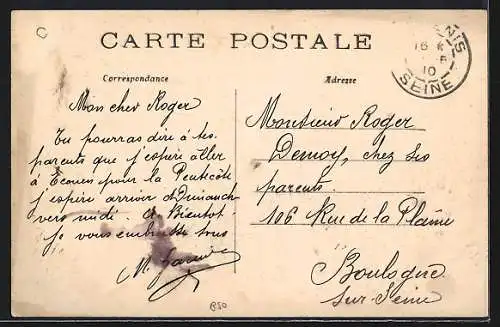 C
CARTE POSTALE
Correspondance
Adresse
NIS
16
10
SEINE
Mon cher Roger
Tu pourras dire à tes
parents que j'espère aller
à Ecouen pour la Pentecôte
j'espère arriver Dimanche
vers midi. à Bientôt
je vous embrasse tous
M.
Monsieur Roger
Demoy, chez ses
parents
106 Rue de la Plaine
Boulogne
sur-Seine